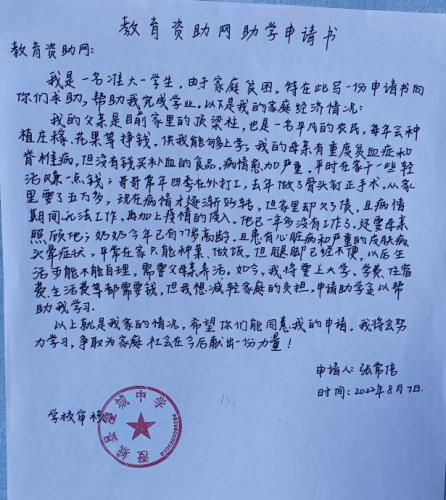 教育资助网助学申请书
教育资助网:
我是一名准大一学生,由于家庭贫困,特在此写一份申请书向
你们求助,帮助我完成学业。以下是我的家庭经济情况:
我的父亲是目前家里的顶梁柱,也是一名平凡的农民,每年去种
植庄稼、花果等挣钱,供我能够上学;我的母亲有重度贫血症和
脊椎病,但没有钱买补血的食品,病情愈加严重,平时在家干一些轻
活只赚一点钱;哥哥常年四季在外打工,去年做了骨头矫正手术,从家
里要了五万多,现在病情才逐渐好转,但家里却欠了债,且病情
期间无法工作,再加上疫情的侵入,他已一年多没有工作了,还要母亲
照顾他;奶奶今年已有77岁高龄,且患有心脏病和严重的皮肤病、
头晕症状,平常在家只能种菜、做饭,但腿脚已经不便,以后生
活可能不能自理,需要父亲养活。如今,我将要上大学,学费、住宿
费、生活费等都需要钱,但我想减轻家庭的负担,申请助学金以帮
助我学习。
以上就是我家的情况,希望你们能同意我的申请。我将会努
力学习,争取为家庭、社会在今后献出一份力量!
申请人:张常
时间:2022年8月7日.
学校审核:
中学